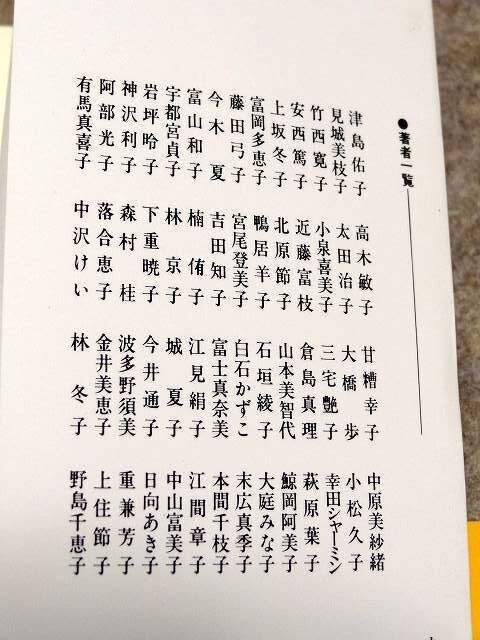 ●著者一覧
津島佑子
見城美枝子
竹西寛子
安西篤子
上坂冬子
富岡多恵子
藤田弓子
今木夏
富山和子
宇都宮貞子
岩坪昤子
神沢利子
阿部光子
有馬真喜子
高木敏子
太田治子
小泉喜美子
近藤富枝
北原節子
鴨居羊子
宮尾登美子
吉田知子
楠侑子
林京子
下重暁子
森村桂
落合恵子
中沢けい
甘糟幸子
大橋歩
三宅艶子
倉島真理
山本美智代
石垣綾子
白石かずこ
富士真奈美
江見絹子
城夏子
今井通子
波多野須美
金井美恵子
林冬子
中原美紗緒
小松久子
幸田シャーミン
萩原葉子
鯨岡阿美子
大庭みな子
末広真季子
本間千枝子
江間章子
中山富美子
日向あき子
重兼芳子
上住節子
野島千恵子